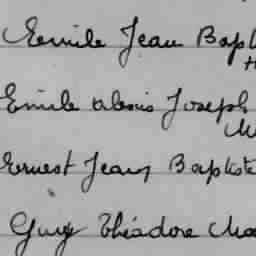 Emile Jean Bapt
Emile Alexis Joseph
Ernest Jean Baptiste
Guy Théodore